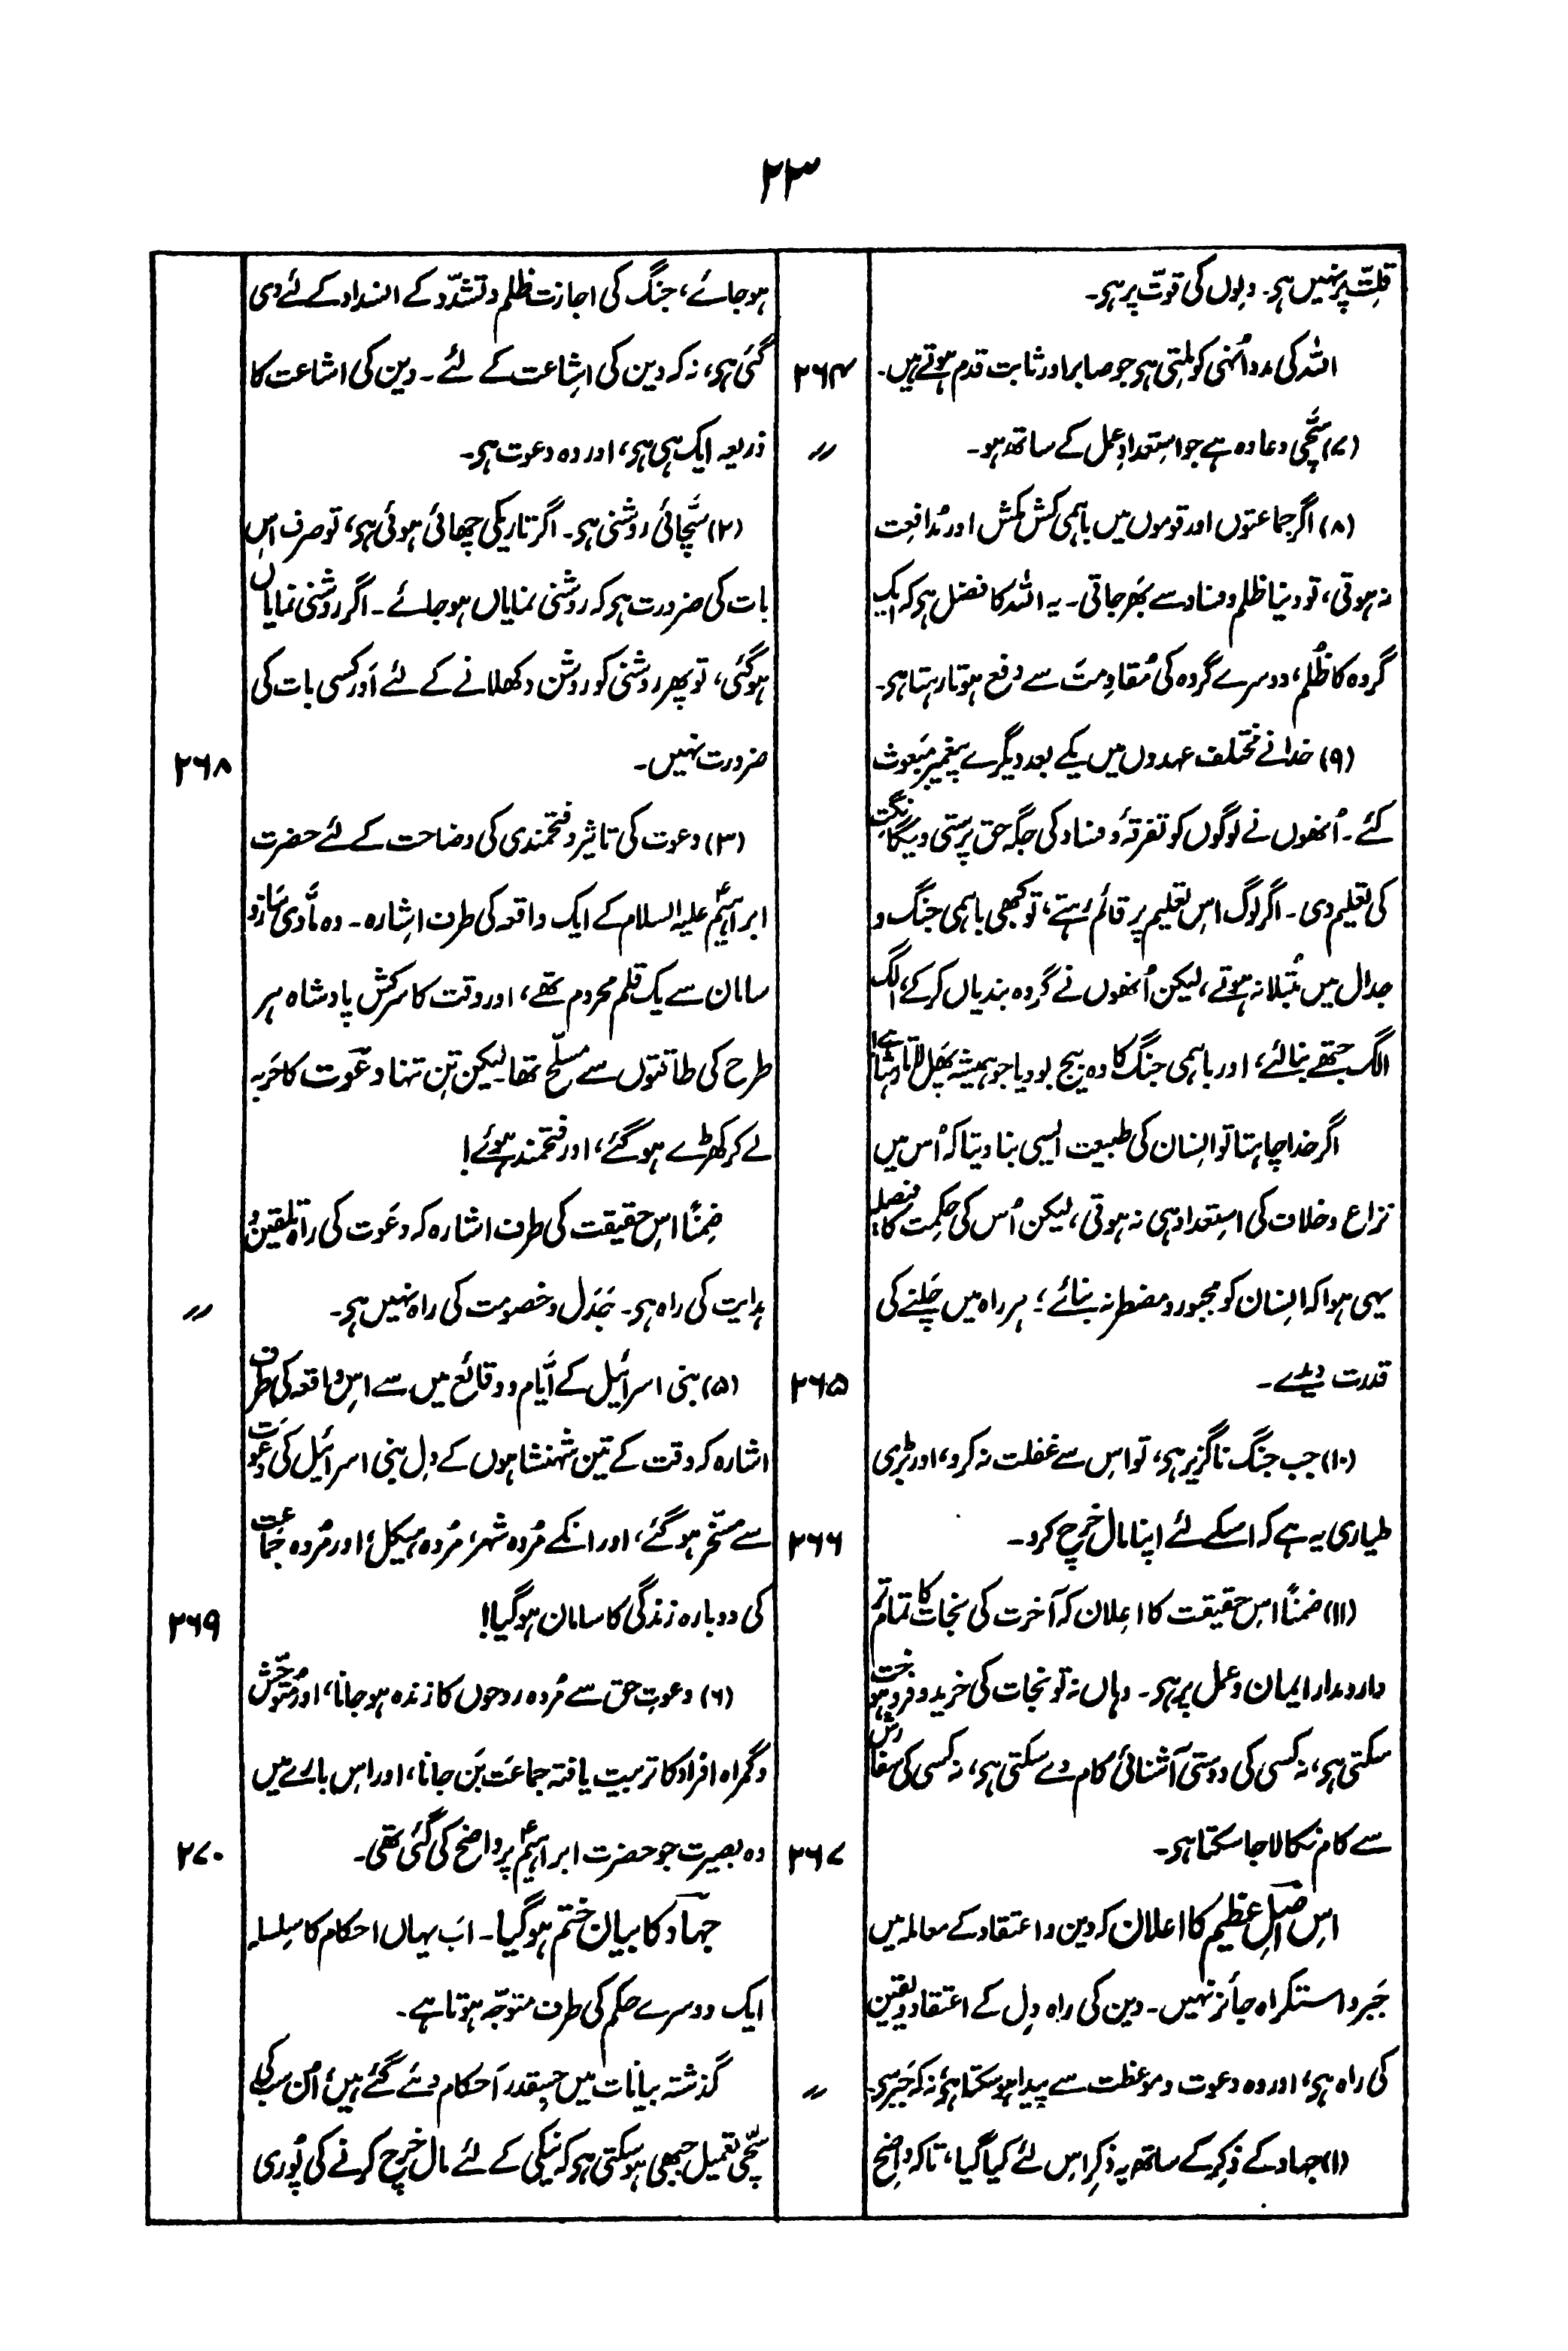 ۲۳
قلت پر نہیں ہی۔ دلوں کی قوت پر ہی۔
اللہ کی مدد اُنہی کو ملتی ہی جو صابر اور ثابت قدم ہوتے ہیں۔ ۲۶۴
(۷) سچّی دعا وہ ہے جو استعدادِ عمل کے ساتھ ہو۔ 〃
(۸) اگر جماعتوں اور قوموں میں باہمی کش مکش اور مُدافعت
نہ ہوتی، تو دنیا ظلم و فساد سے بھر جاتی۔ یہ اللہ کا فضل ہی کہ ایک
گروہ کا ظُلم، دوسرے گروہ کی مُقاوِمت سے دفع ہوتا رہتا ہی۔
(۹) خدا نے مختلف عہدوں میں یکے بعد دیگرے پیغمبر مبعوث
کئے۔ اُنھوں نے لوگوں کو تفرقہ و فساد کی جگہ حق پرستی و یگانگت
کی تعلیم دی۔ اگر لوگ اس تعلیم پر قائم رہتے، تو کبھی باہمی جنگ و
جدال میں مُبتلا نہ ہوتے، لیکن اُنھوں نے گروہ بندیاں کرکے، الگ
الگ جتھے بنالئے، اور باہمی جنگ کا وہ بیج بو دیا جو ہمیشہ پھل لاتا رہتا ہے!
اگر خدا چاہتا تو انسان کی طبیعت ایسی بنا دیتا کہ اُس میں
نزاع و خلاف کی استعداد ہی نہ ہوتی، لیکن اُس کی حکمت کا فیصلہ
یہی ہوا کہ انسان کو مجبور و مضطر نہ بنائے؛ ہر راہ میں چلنے کی
قدرت دیدے۔ ۲۶۵
(۱۰) جب جنگ ناگزیر ہی، تو اس سے غفلت نہ کرو، اور بڑی
طیاری یہ ہے کہ اسکے لئے اپنا مال خرچ کرو۔ ۲۶۶
(۱۱) ضمناً اس حقیقت کا اعلان کہ آخرت کی نجات کا تمام تر
دار و مدار ایمان و عمل پر ہی۔ وہاں نہ تو نجات کی خرید و فروخت ہو
سکتی ہی، نہ کسی کی دوستی آشنائی کام دے سکتی ہی، نہ کسی کی سفارش
سے کام نکالا جا سکتا ہی۔ ۲۶۷
اس اصلِ عظیم کا اعلان کہ دین و اعتقاد کے معاملہ میں
جَبر و استکراہ جائز نہیں۔ دین کی راہ دل کے اعتقاد و یقین
کی راہ ہی، اور وہ دعوت و موعظت سے پیدا ہو سکتا ہی، نہ کہ جبر سی۔ 〃
(۱) جہاد کے ذکر کے ساتھ یہ ذکر اس لئے کیا گیا، تاکہ واضح
ہو جائے، جنگ کی اجازت ظلم و تشدّد کے انسداد کے لئے دی
گئی ہی، نہ کہ دین کی اشاعت کے لئے۔ دین کی اشاعت کا
ذریعہ ایک ہی ہی، اور وہ دعوت ہی۔
(۲) سچّائی روشنی ہی۔ اگر تاریکی چھائی ہوئی ہی، تو صرف اس
بات کی ضرورت ہی کہ روشنی نمایاں ہو جائے۔ اگر روشنی نمایاں
ہوگئی، تو پھر روشنی کو روشن دکھلانے کے لئے اَور کسی بات کی
ضرورت نہیں۔ ۲۶۸
(۳) دعوت کی تاثیر و فتحمندی کی وضاحت کے لئے حضرت
ابراہیمؑ علیہ السلام کے ایک واقعہ کی طرف اشارہ۔ وہ مادّی سازو
سامان سے یک قلم محروم تھے، اور وقت کا سرکش پادشاہ ہر
طرح کی طاقتوں سے مسلّح تھا لیکن تن تنہا دعوت کا حَربہ
لے کر کھڑے ہو گئے، اور فتحمند ہوئے!
ضمناً اس حقیقت کی طرف اشارہ کہ دعوت کی راہ تلقین و
ہدایت کی راہ ہی۔ جَدَل و خصومت کی راہ نہیں ہی۔ 〃
(۵) بنی اسرائیل کے ایّام و وقائع میں سے اس واقعہ کی طرف
اشارہ کہ وقت کے تین شہنشاہوں کے دل بنی اسرائیل کی دعوت
سے مسخّر ہو گئے، اور انکے مُردہ شہر، مُردہ ہیکل، اور مُردہ جماعت
کی دوبارہ زندگی کا سامان ہوگیا! ۲۶۹
(۶) دعوتِ حق سے مُردہ روحوں کا زندہ ہو جانا، اور متوحّش
و گمراہ افراد کا تربیت یافتہ جماعت بَن جانا، اور اس بارے میں
وہ بصیرت جو حضرت ابراہیمؑ پر واضح کی گئی تھی۔ ۲۷۰
جہاد کا بیان ختم ہوگیا۔ اب یہاں احکام کا سلسلہ
ایک دوسرے حکم کی طرف متوجّہ ہوتا ہے۔
گذشتہ بیانات میں جسقدر اَحکام دئے گئے ہیں، اُن سب کی
سچّی تعمیل جبھی ہو سکتی ہی کہ نیکی کے لئے مال خرچ کرنے کی پُوری